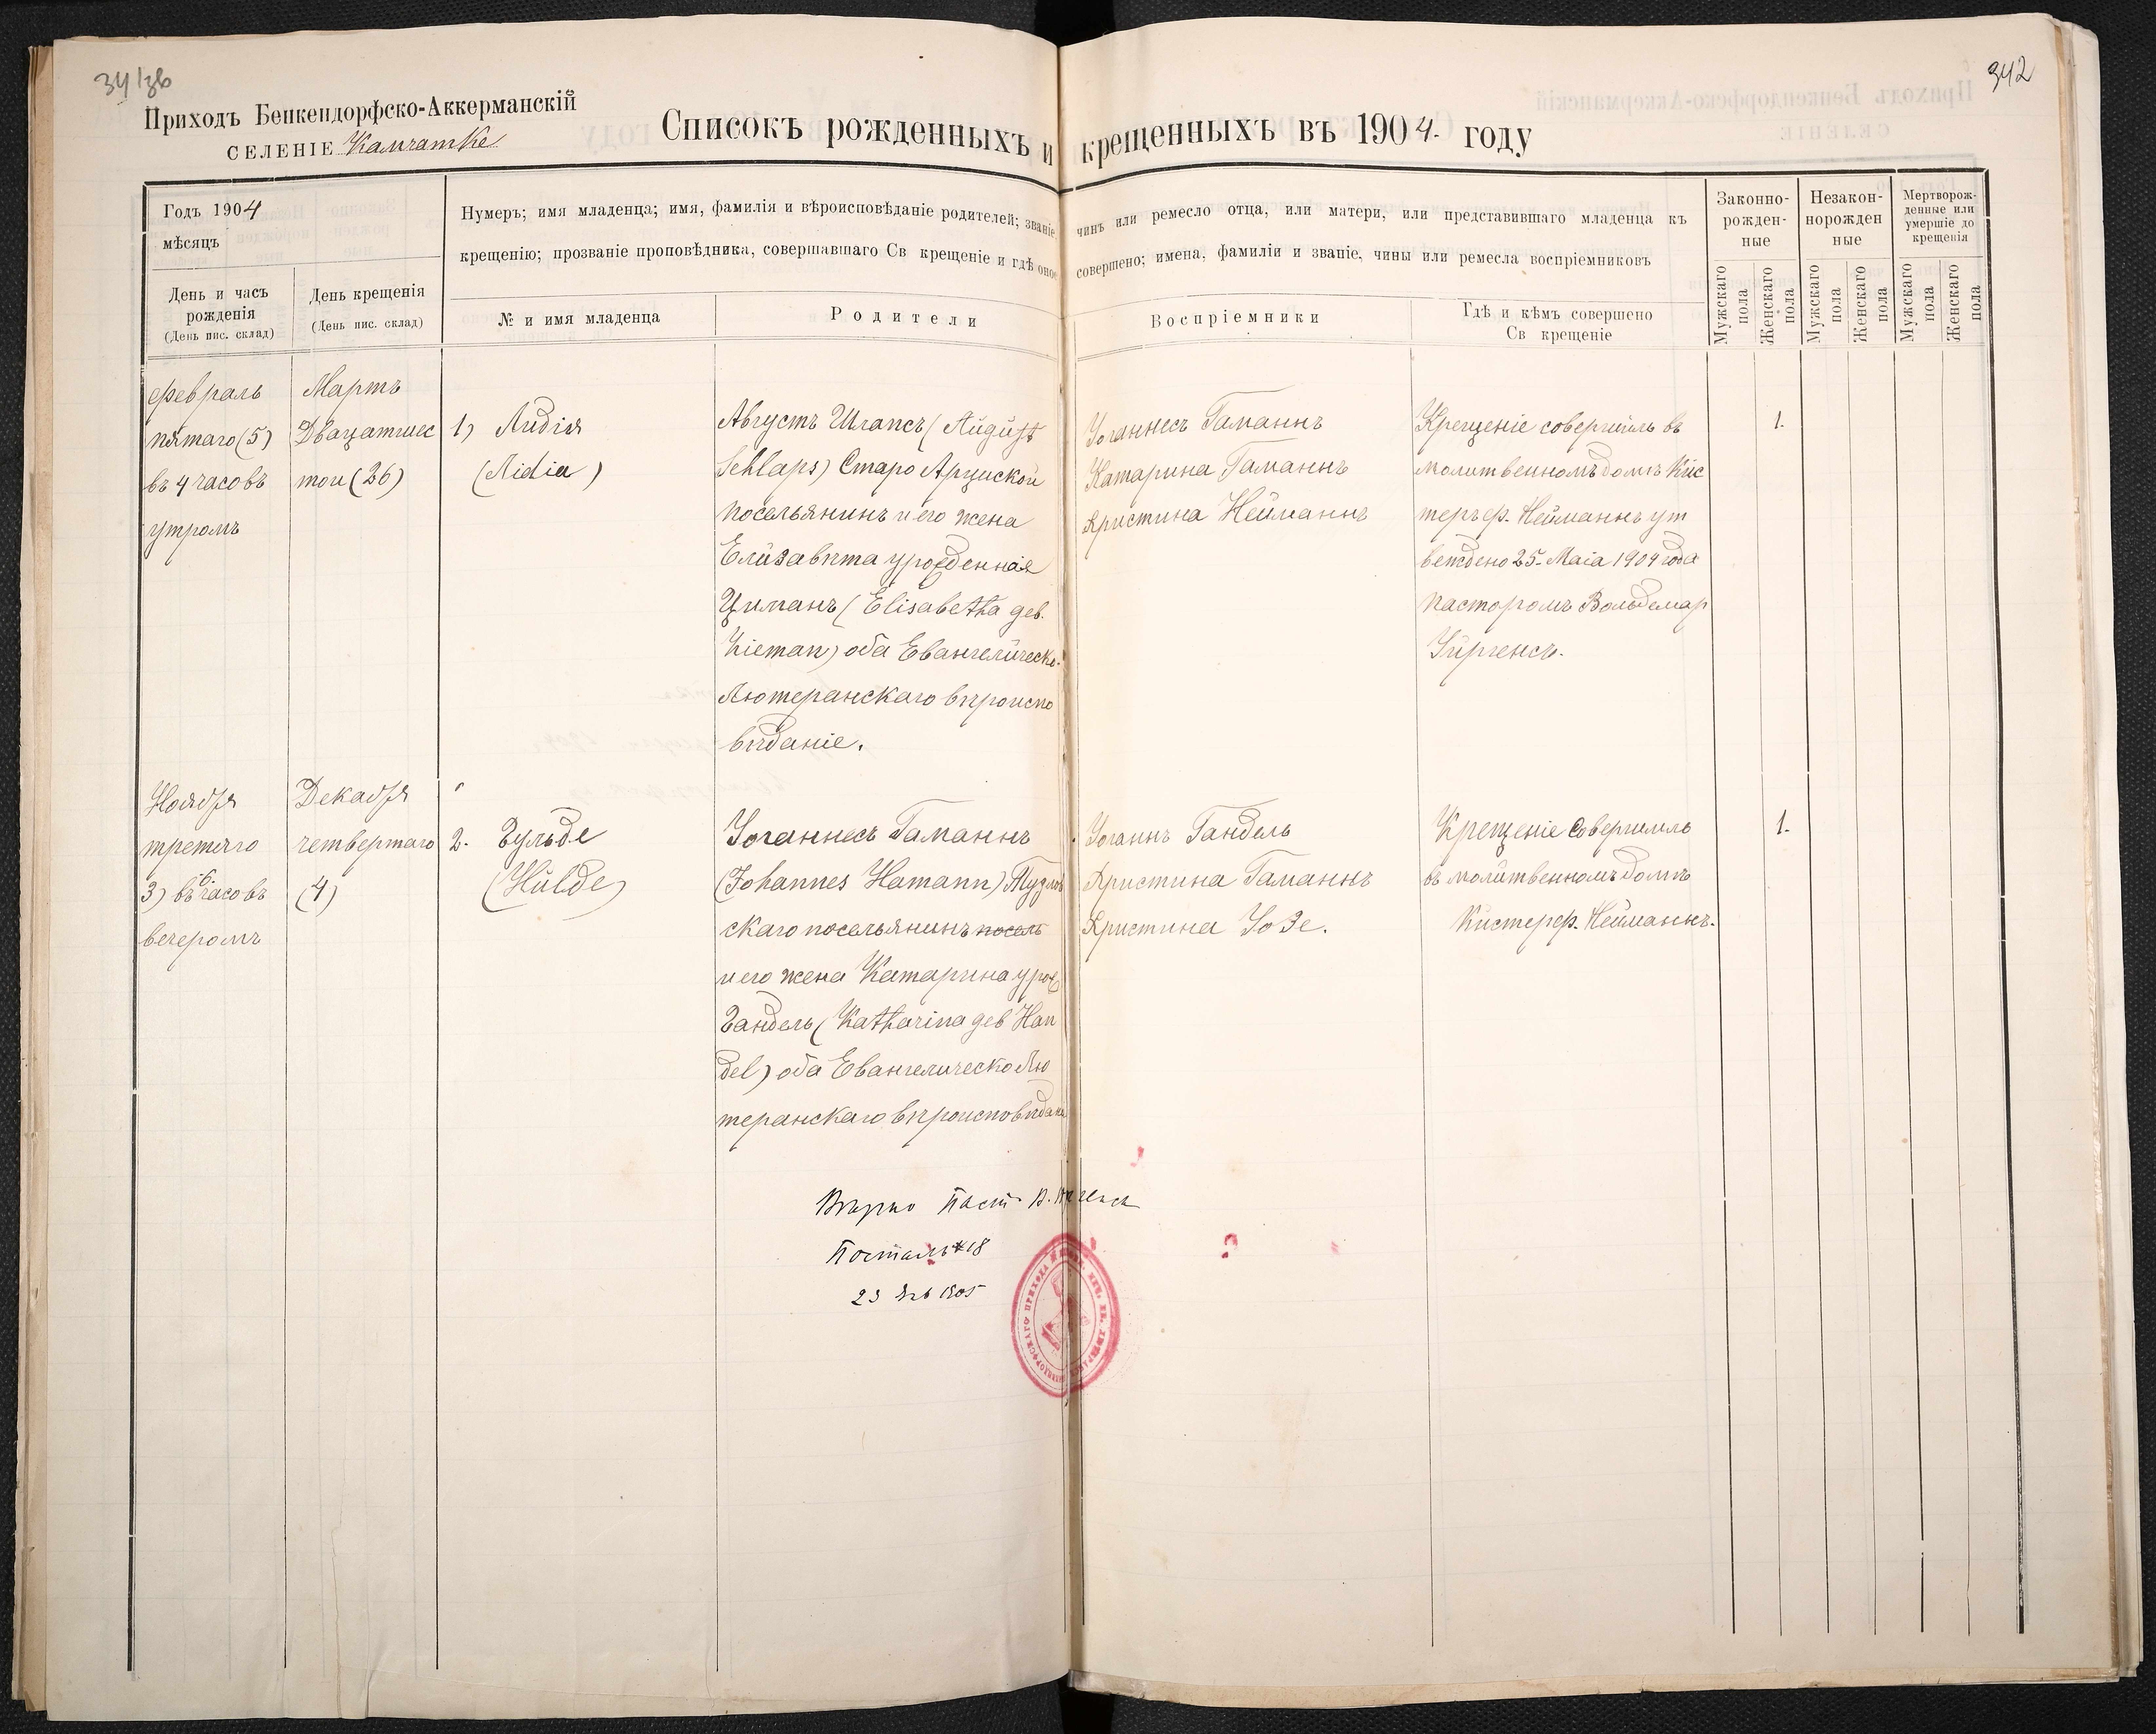 342
Приходъ Бенкендорфско-Аккерманскій
СЕЛЕНІЕ Камчатке
Списокъ рожденныхъ и крещенныхъ въ 1904. году
Годъ 1904
мѣсяцъ
День и часъ
рожденія
(День пис. склад)
День крещенія
(День пис. склад)
Нумеръ; имя младенца; имя, фамилія и вѣроисповѣданіе родителей; званіе, чинъ или ремесло отца, или матери, или представившаго младенца къ
крещенію; прозваніе проповѣдника, совершавшаго Св крещеніе и гдѣ оное совершено; имена, фамиліи и званіе, чины или ремесла воспріемниковъ
№ и имя младенца
Родители
Воспріемники
Гдѣ и кѣмъ совершено
Св крещеніе
Законно-
рожден-
ные
Незакон-
норожден
ные
Мертворож-
денные или
умершіе до
крещенія
Мужскаго
пола
Женскаго
пола
Мужскаго
пола
Женскаго
пола
Мужскаго
пола
Женскаго
пола
февраль
пятаго (5)
въ 4 часовъ
утромъ
Мартъ
Двацатшес
тои (26)
1) Лидія
(Lidia)
Августъ Шлапсъ (August
Schlaps) Старо Арцискои
посельянинъ и его жена
Елизавѣта уроeденная
Циманъ (Elisabetha geb.
Zieman) оба Евангелическо-
Лютеранскаго вѣроиспо
вѣданіе.
Іоганнесъ Гаманнъ
Катарина Гаманнъ
Кристина Нейманнъ
Крещеніе совершилъ въ
молитвенномъ домѣ Кис
теръ ф. Нейманнъ ут
веждено 25. Маіа 1904 года
пасторомъ Вольдемар
Юргенсъ.
1.
Ноября
третяго
3) въ 6. часовъ
вечеромъ
Декабря
четвертаго
(4)
2. Гульде
(Hulde)
Іоганнесъ Гаманнъ
(Johannes Hamann) Тузлов
скаго посельянинъ посель
и его жена Катарина урое
Гандель (Katharina geb Han
del) оба Евангелическо Лю
теранскаго вѣроисповѣдани
Іоганнъ Гандель
Кристина Гаманнъ
Кристина Іозе.
Крещеніе Совершилъ
въ молитвенномъ домѣ
Кистер ф. Нейманнъ.
1.
Вѣрно Паст. В. Юргенсъ
Постиль № 18
23 Янв 1905